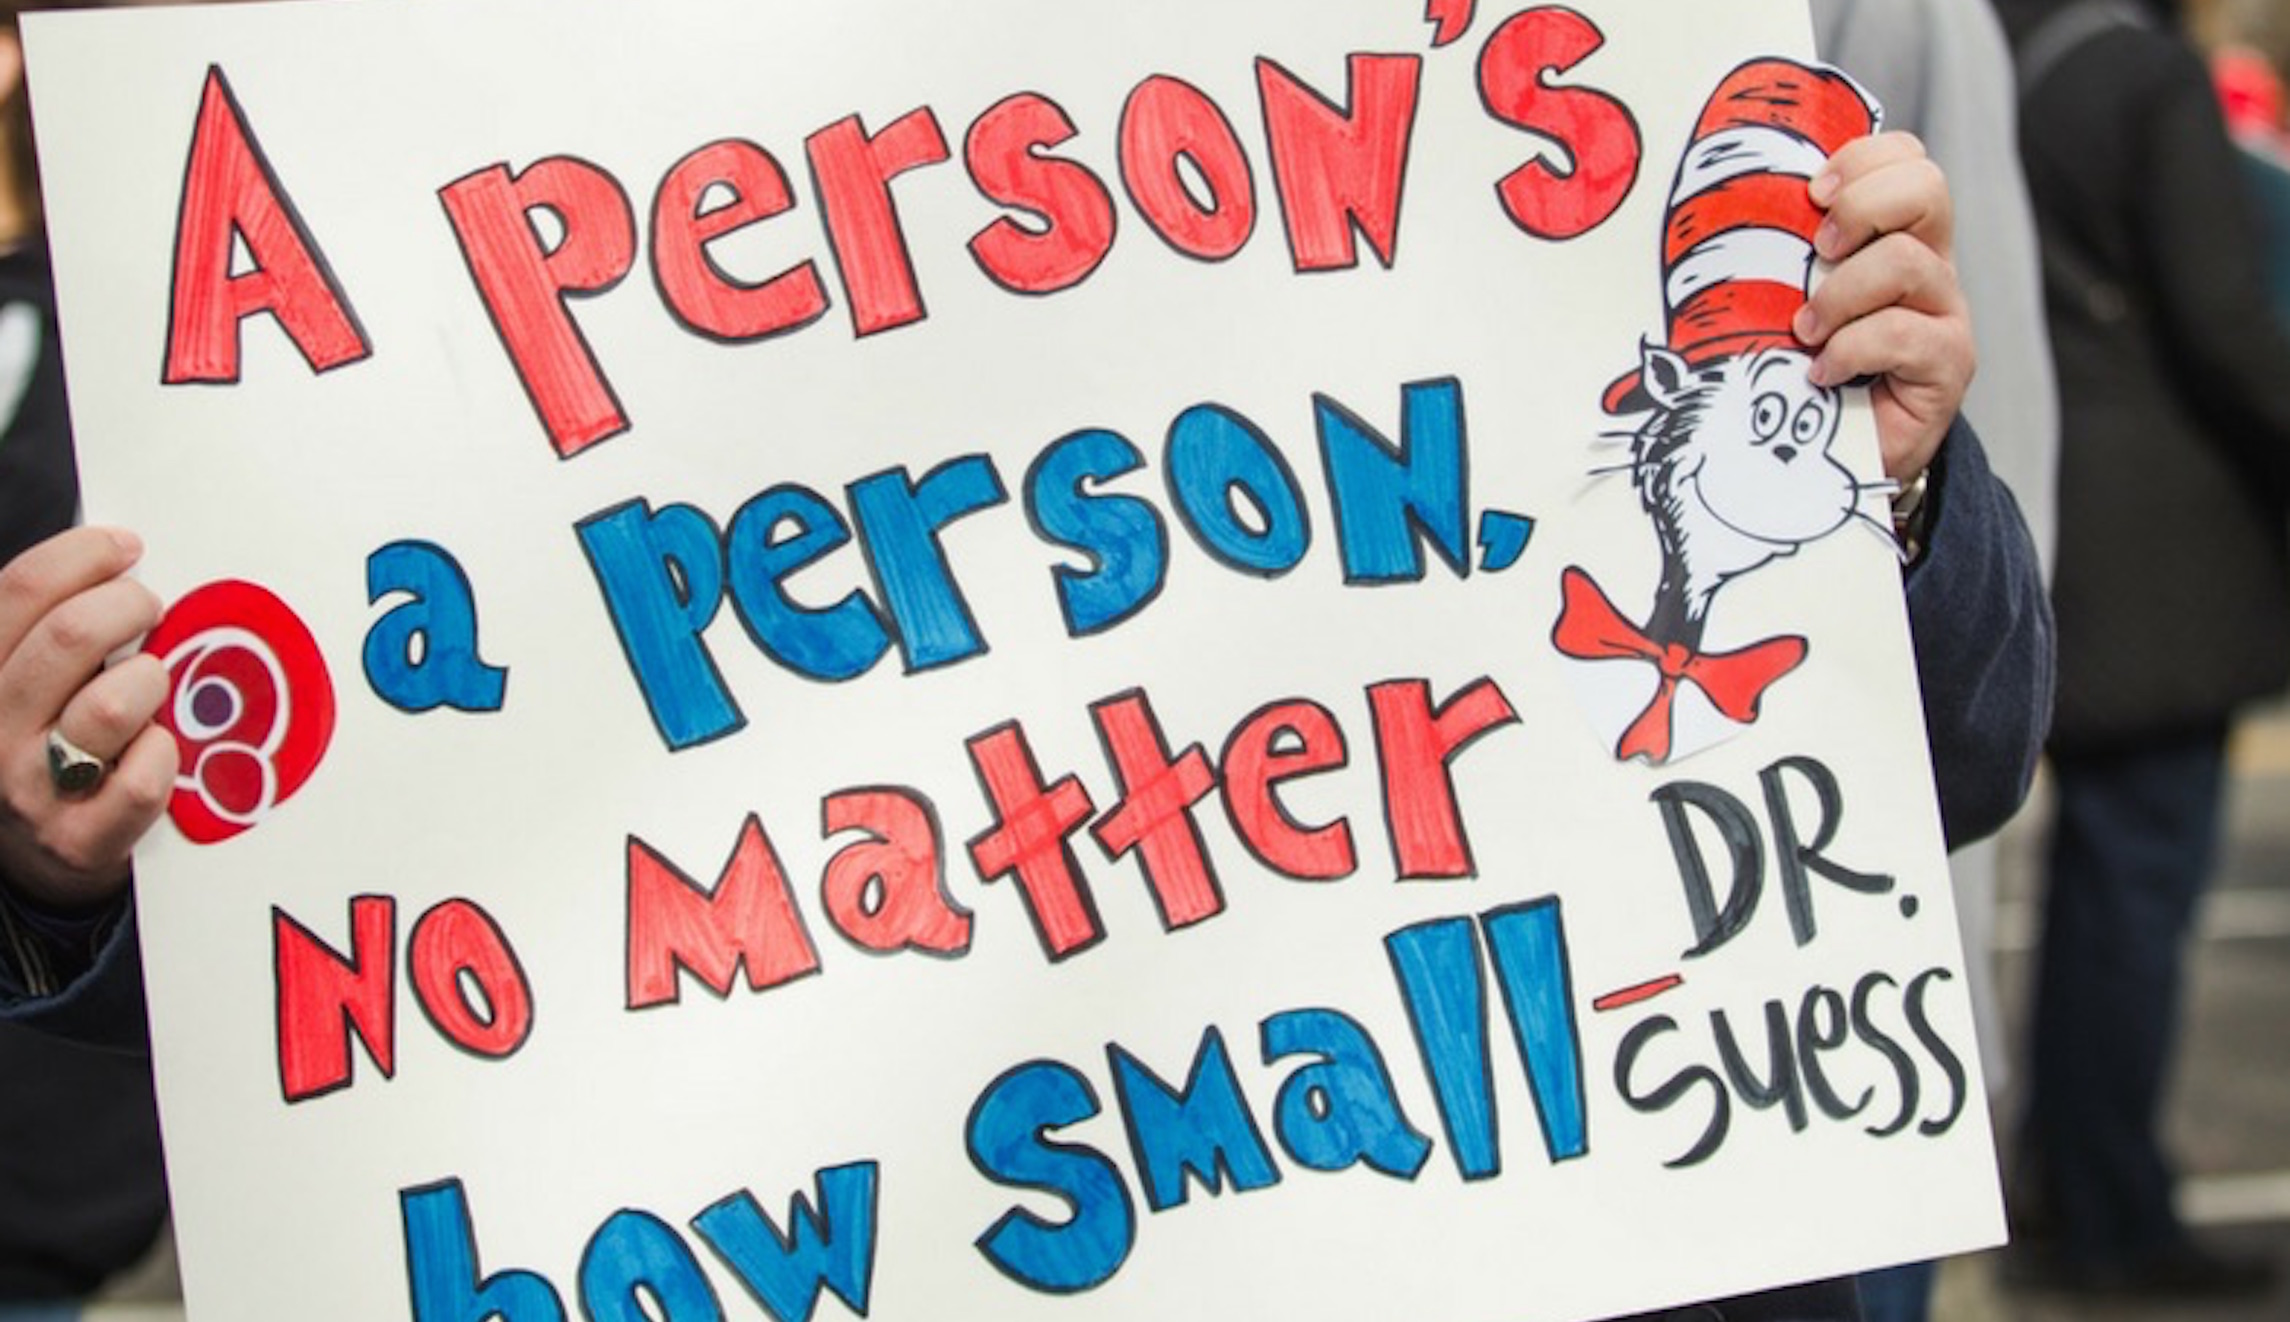 A person's
a person,
No Matter
how small
- DR.
Suess